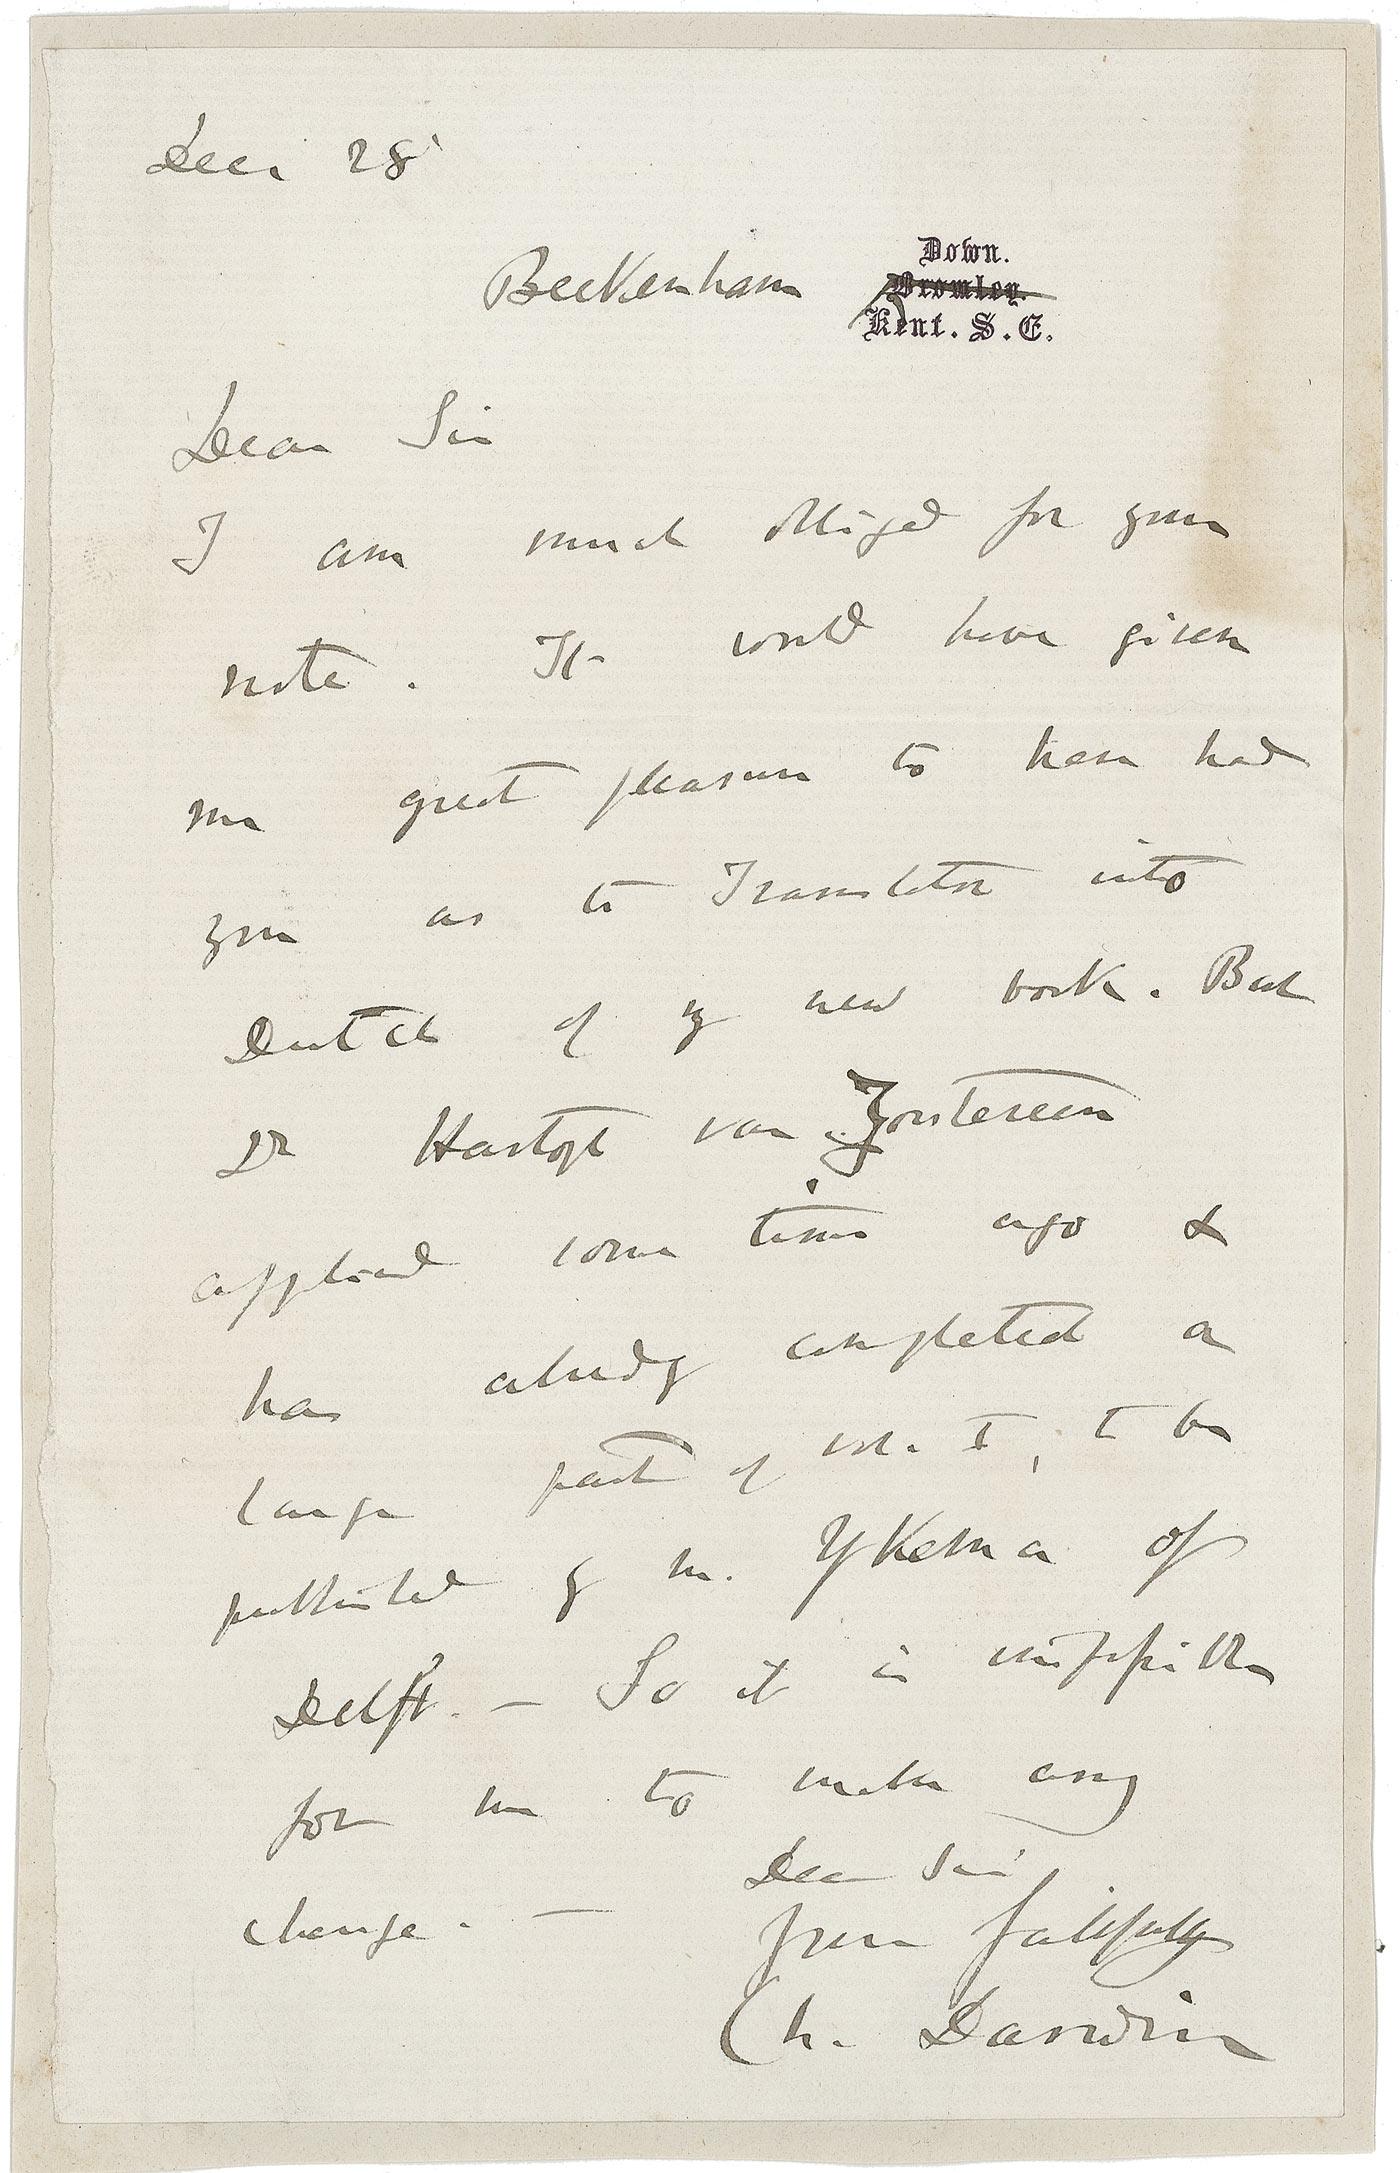 Dec. 28
Down.
Beckenham Bromley.
Kent. S.E.
Dear Sir
I am much obliged for your
note. It would have given
me great pleasure to have had
you as the Translator into
Dutch of my new book. But
Dr Hartogh van Zouteveen
applied some time ago &
has already completed a
large part of vol. I, to be
published by Mr. Ykema of
Delft. — So it is impossible
for me to make any
change. —
Dear Sir
Yours faithfully
Ch. Darwin